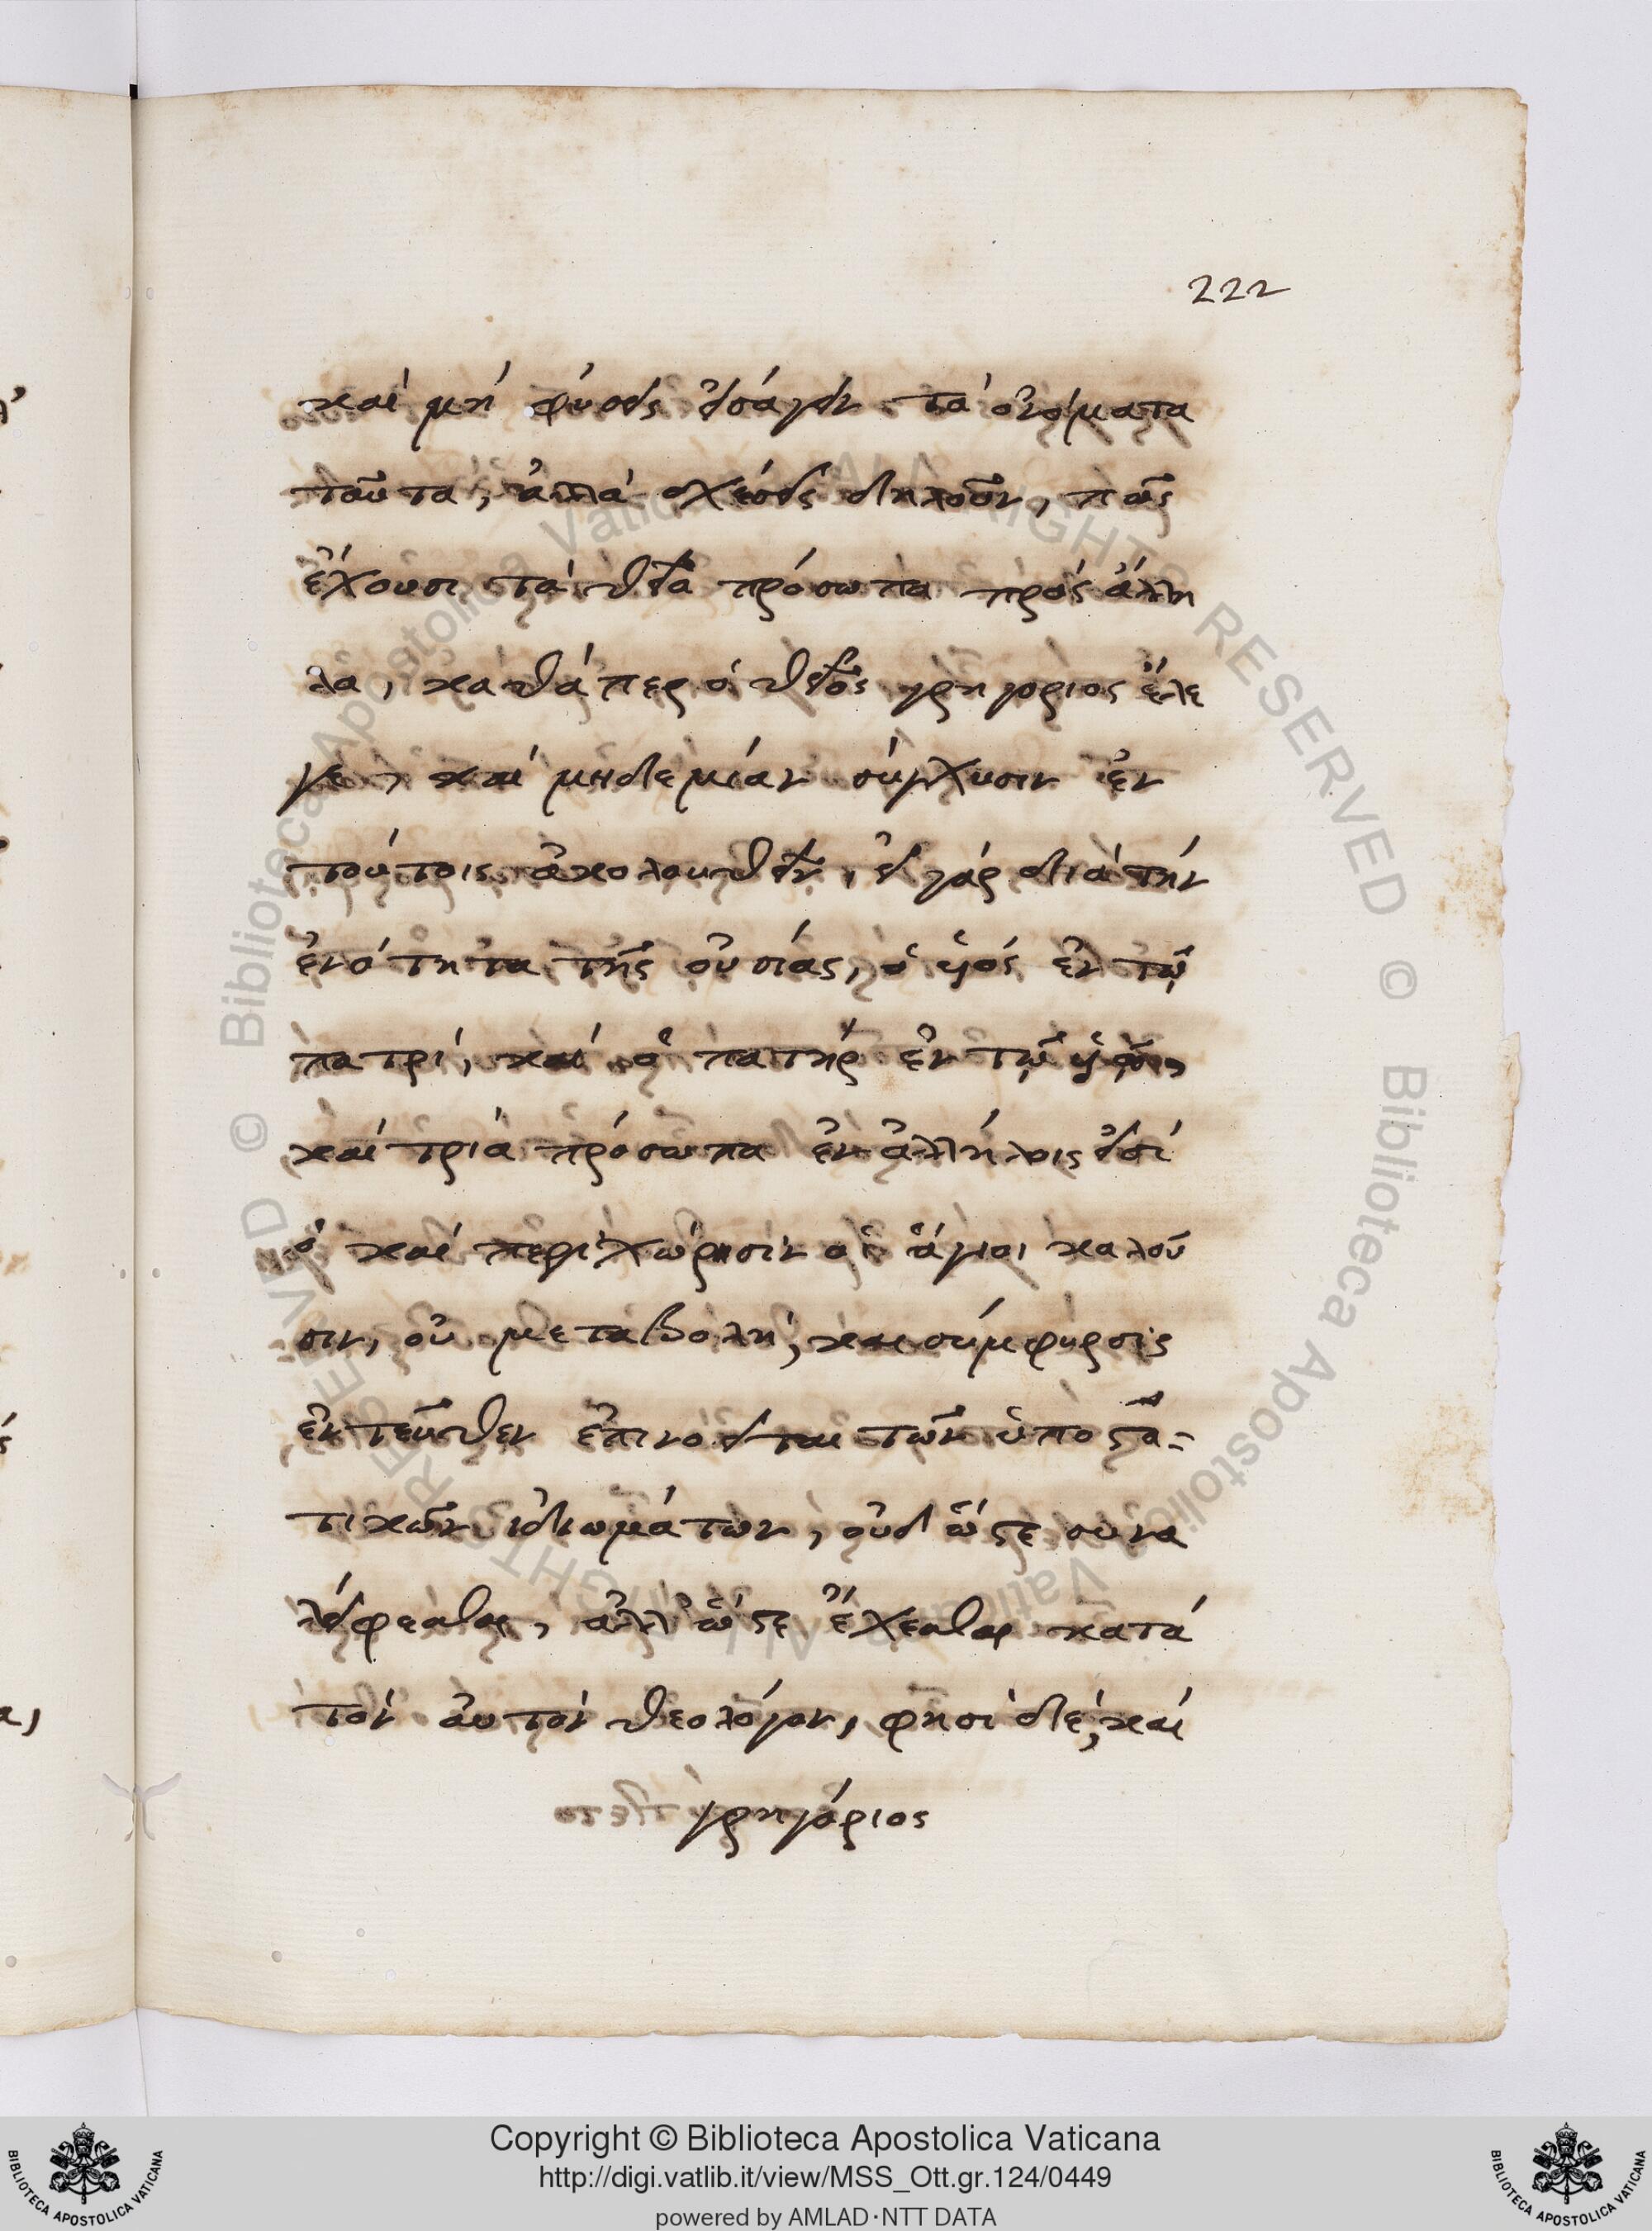 222
καὶ μὴ φύσεις εἰσάγειν τὰ ὀνόματα
ταῦτα, ἀλλὰ σχέσεις δηλοῦν, πῶς
ἔχουσι τὰ θεῖα πρόσωπα πρὸς ἄλλη
λα, καθάπερ ὁ θεῖος γρηγόριος ἔλε
γε, καὶ μηδεμίαν σύγχυσιν ἐν
τούτοις ἀκολουθεῖν, εἰ γὰρ διὰ τὴν
ἑνότητα τῆς οὐσίας, ὁ υἱός ἐν τῷ
πατρί, καὶ ὁ πατὴρ ἐν τῷ υἱῷ,
καὶ τρία πρόσωπα ἐν ἀλλήλοις εἰσὶ
ὃ καὶ περιχώρησιν οἱ ἅγιοι καλοῦ
σιν, οὐ μεταβολὴ, καὶ σύμφυρσις
ἐντεῦθεν ἐπινοεῖται τῶν ὑποστα-
τικῶν ἰδιωμάτων, οὐδ ὥστε συνα
λείφεσθαι, ἀλλ' ὥστε ἔχεσθαι κατὰ
τὸν αὐτὸν θεολόγον, φησὶ δὲ, καὶ
γρηγόριος
Copyright © Biblioteca Apostolica Vaticana
http://digi.vatlib.it/view/MSS_Ott.gr.124/0449
powered by AMLAD·NTT DATA
BIBLIOTECA APOSTOLICA VATICANA
BIBLIOTECA APOSTOLICA VATICANA